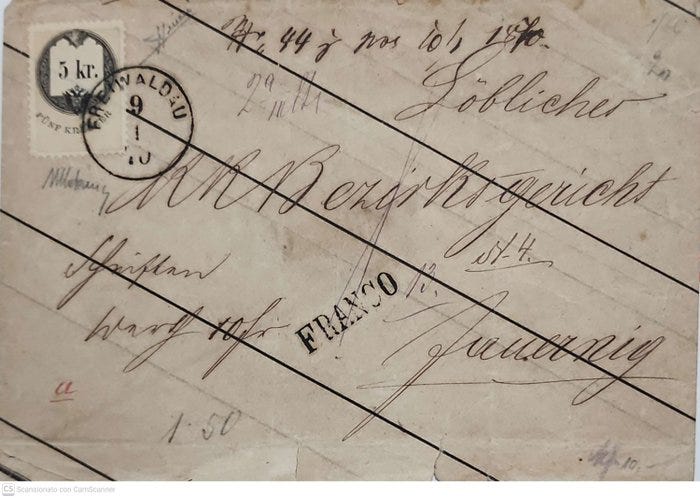 Nr 44 j pos 10/1 1870.
5 kr.
FÜNF KR
FREIWALDAU
9
1
70
Löblicher
KK Bezirksgericht
Schriften
werth 10 fr
FRANCO
13.
Jauernig
a
1·50
10.-
CS Scansionato con CamScanner